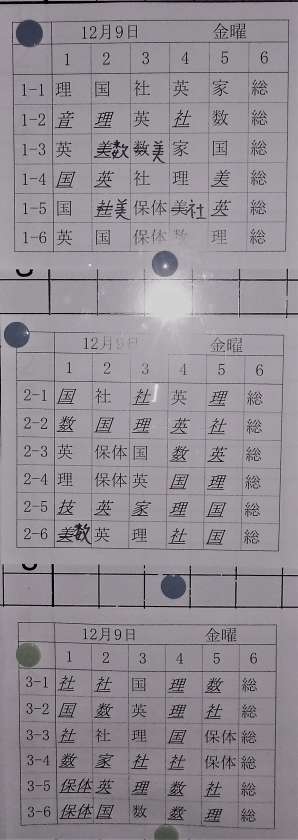 12月9日 金曜
1 2 3 4 5 6
1-1 理 国 社 英 家 総
1-2 音 理 英 社 数 総
1-3 英 美数 数美 家 国 総
1-4 国 英 社 理 美 総
1-5 国 社美 保体 美社 英 総
1-6 英 国 保体 数 理 総
12月9日 金曜
1 2 3 4 5 6
2-1 国 社 社 英 理 総
2-2 数 国 理 英 社 総
2-3 英 保体 国 数 英 総
2-4 理 保体 英 国 理 総
2-5 技 英 家 理 国 総
2-6 美数 英 理 社 国 総
12月9日 金曜
1 2 3 4 5 6
3-1 社 社 国 理 数 総
3-2 国 数 英 理 社 総
3-3 社 社 理 国 保体 総
3-4 数 家 社 社 保体 総
3-5 保体 英 理 数 社 総
3-6 保体 国 数 数 理 総